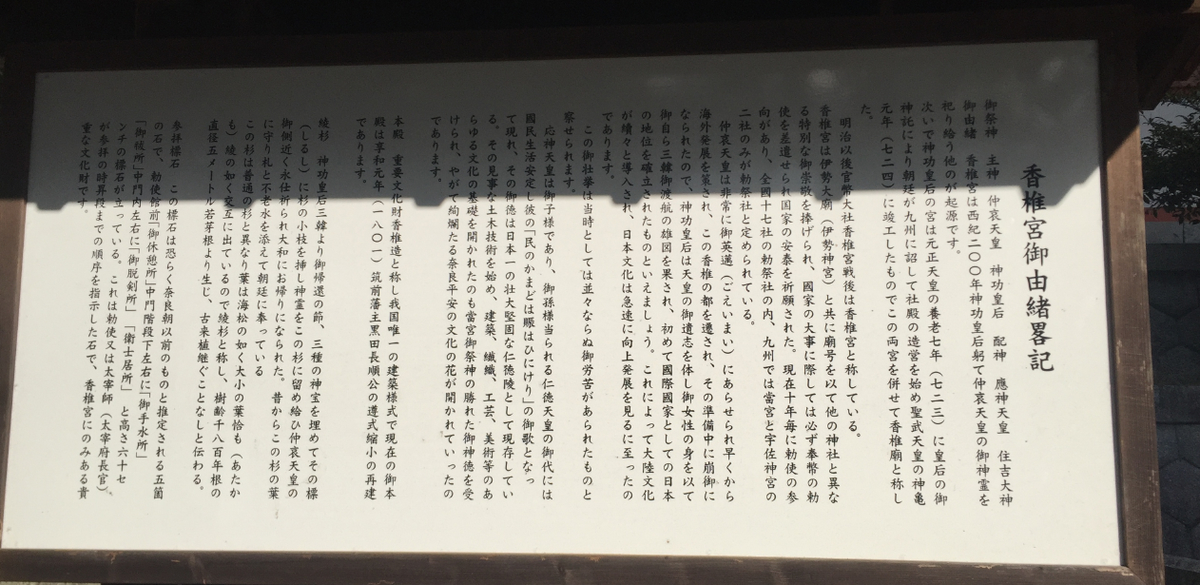 香椎宮御由緒畧記
御祭神　主神　仲哀天皇　神功皇后　配神　應神天皇　住吉大神
御由緒　香椎宮は西紀二〇〇年神功皇后躬て仲哀天皇の御神霊を
祀り給う他のが起源です。
次いで神功皇后の宮は元正天皇の養老七年（七二三）に皇后の御
神託により朝廷が九州に詔して社殿の造営を始め聖武天皇の神亀
元年（七二四）に竣工したものでこの両宮を併せて香椎廟と称し
た。
明治以後官幣大社香椎宮戦後は香椎宮と称している。
香椎宮は伊勢大廟（伊勢神宮）と共に廟号を以て他の神社と異な
る特別な御崇敬を捧げられ、國家の大事に際しては必ず奉幣の勅
使を差遣せられ国家の安泰を祈願された。現在十年毎に勅使の参
向があり、全国十七社の勅祭社の内、九州では當宮と宇佐神宮の
二社のみが勅祭社と定められている。
仲哀天皇は非常に御英邁（ごえいまい）にあらせられ早くから
海外発展を策され、この香椎の都を遷され、その準備中に崩御に
なられたので、神功皇后は天皇の御遺志を体し御女性の身を以て
御自ら三韓御渡航の雄図を果され、初めて國際國家としての日本
の地位を確立されたものといえましょう。これによって大陸文化
が續々と導入され、日本文化は急速に向上発展を見るに至ったの
であります。
この御壮挙は当時としては並々ならぬ御労苦があられたものと
察せられます。
応神天皇は御子様であり、御孫様当られる仁徳天皇の御代には
國民生活安定し彼の「民のかまどは賑はひにけり」の御歌となっ
て現れ、その御徳は日本一の壮大堅固な仁徳陵として現存してい
る。その見事な土木技術を始め、建築、織織、工芸、美術等のあ
らゆる文化の基礎を開かれたのも當宮御祭神の勝れた御神徳を受
けられ、やがて絢爛たる奈良平安の文化の花が開かれていったの
であります。
本殿　重要文化財香椎造と称し我国唯一の建築様式で現在の御本
殿は享和元年（一八〇一）筑前藩主黒田長順公の遵式縮小の再建
であります。
綾杉　神功皇后三韓より御帰還の節、三種の神宝を埋めてその標
（しるし）に杉の小枝を挿し神霊をこの杉に留め給ひ仲哀天皇の
御側近く永仕祈られ大和にお帰りになられた。昔からこの杉の葉
に守り札と不老水を添えて朝廷に奉っている
この杉は普通の杉と異なり葉は海松の如く大小の葉恰も（あたか
も）綾の如く交互に出ているので綾杉と称し、樹齢千八百年根の
直径五メートル若芽根より生じ、古来植継ぐことなしと伝わる。
参拝標石　この標石は恐らく奈良朝以前のものと推定される五箇
の石で、勅使館前「御休憩所」中門階段下左右に「御手水所」
「御祓所」中門内左右に「御脱剣所」「衛士居所」　と高さ六十セ
ンチの標石が立っている。これは勅使又は太宰師（太宰府長官）、
が参拝の時昇段までの順序を指示した石で、香椎宮にのみある貴
重な文化財です。